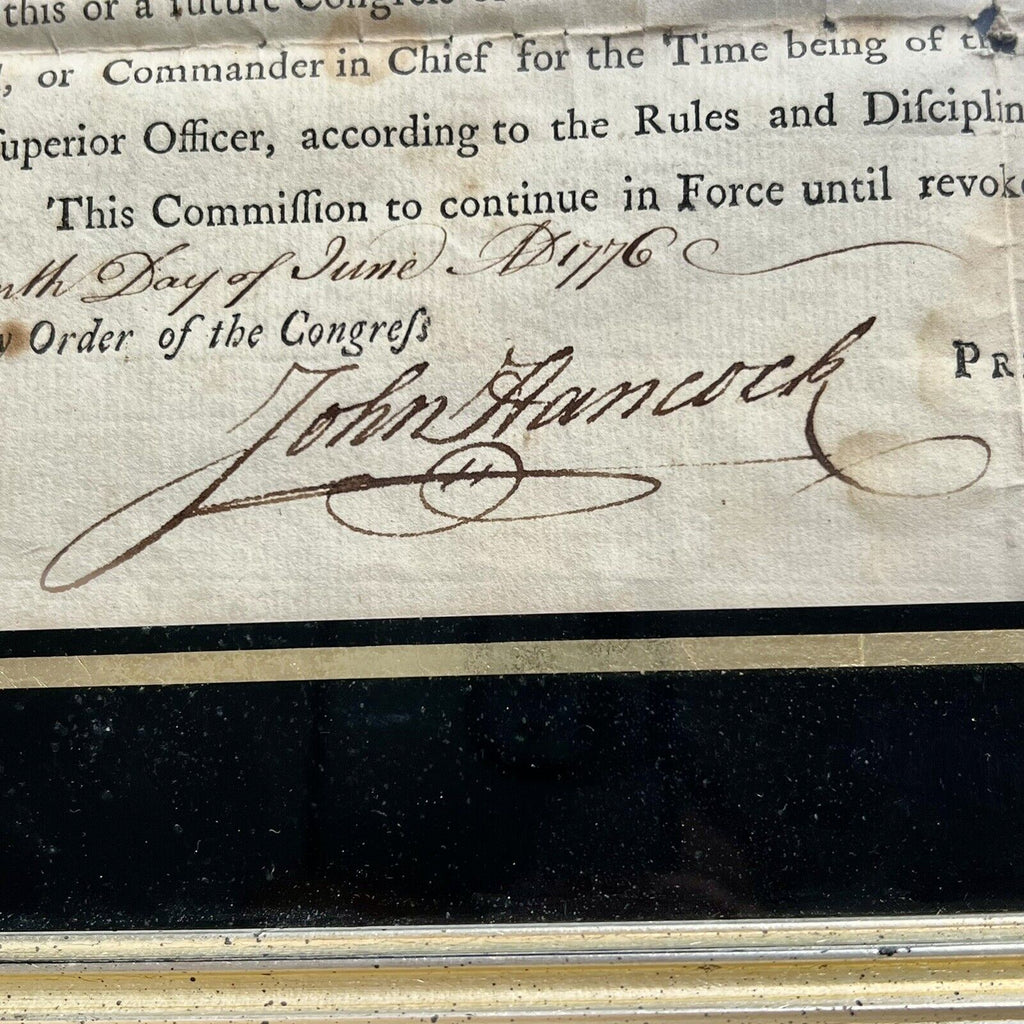 this or a future Congress
, or Commander in Chief for the Time being of the
ſuperior Officer, according to the Rules and Diſciplin
This Commiſſion to continue in Force until revoke
nth Day of June AD 1776
y Order of the Congreſs
John Hancock
PR